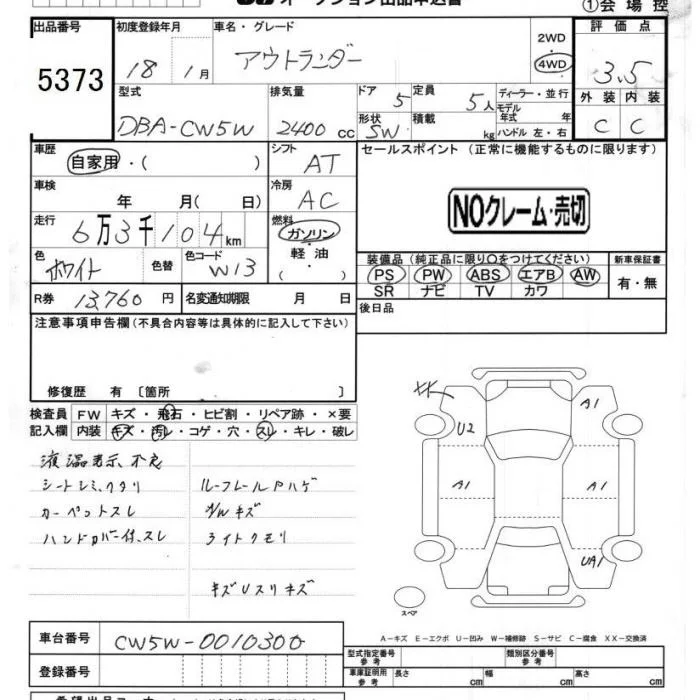 オークション出品申込書
①会場控
出品番号
5373
初度登録年月
18 1月
車名・グレード
アウトランダー
2WD
4WD
評価点
3.5
外装 内装
C C
型式
DBA-CW5W
排気量
2400 cc
ドア 5
形状 SW
定員 5人
積載 kg
ディーラー・並行
モデル年式 年
ハンドル 左・右
車歴
自家用・( )
シフト
AT
セールスポイント (正常に機能するものに限ります)
NOクレーム・売切
車検
年 月( 日)
冷房
AC
走行
6万3千104km
燃料
ガソリン
軽油
( )
色
ホワイト
色替
色コード
W13
装備品(純正品に限り○をつけてください)
PS PW ABS エアB AW
SR ナビ TV カワ
新車保証書
有・無
R券 13,760 円
名変通知期限 月 日
後日品
注意事項申告欄(不具合内容等は具体的に記入して下さい)
修復歴 有 〔箇所 〕
検査員記入欄
FW キズ・飛石・ヒビ割・リペア跡・×要
内装 キズ・汚レ・コゲ・穴・スレ・キレ・破レ
液温表示、不良
シートシミ、クタリ
カーペットスレ
ハンドルカバー付、スレ
ルーフレールPハゲ
A/Wキズ
ライトクモリ
キズUスリキズ
XX
A1
U2
A1
A1
UA1
スペア
A-キズ E-エクボ U-凹み W-補修跡 S-サビ C-腐食 XX-交換済
車台番号
CW5W-0010300
登録番号
型式指定番号
参考
類別区分番号
参考
車庫証明用
参考
長さ cm
幅 cm
高さ cm